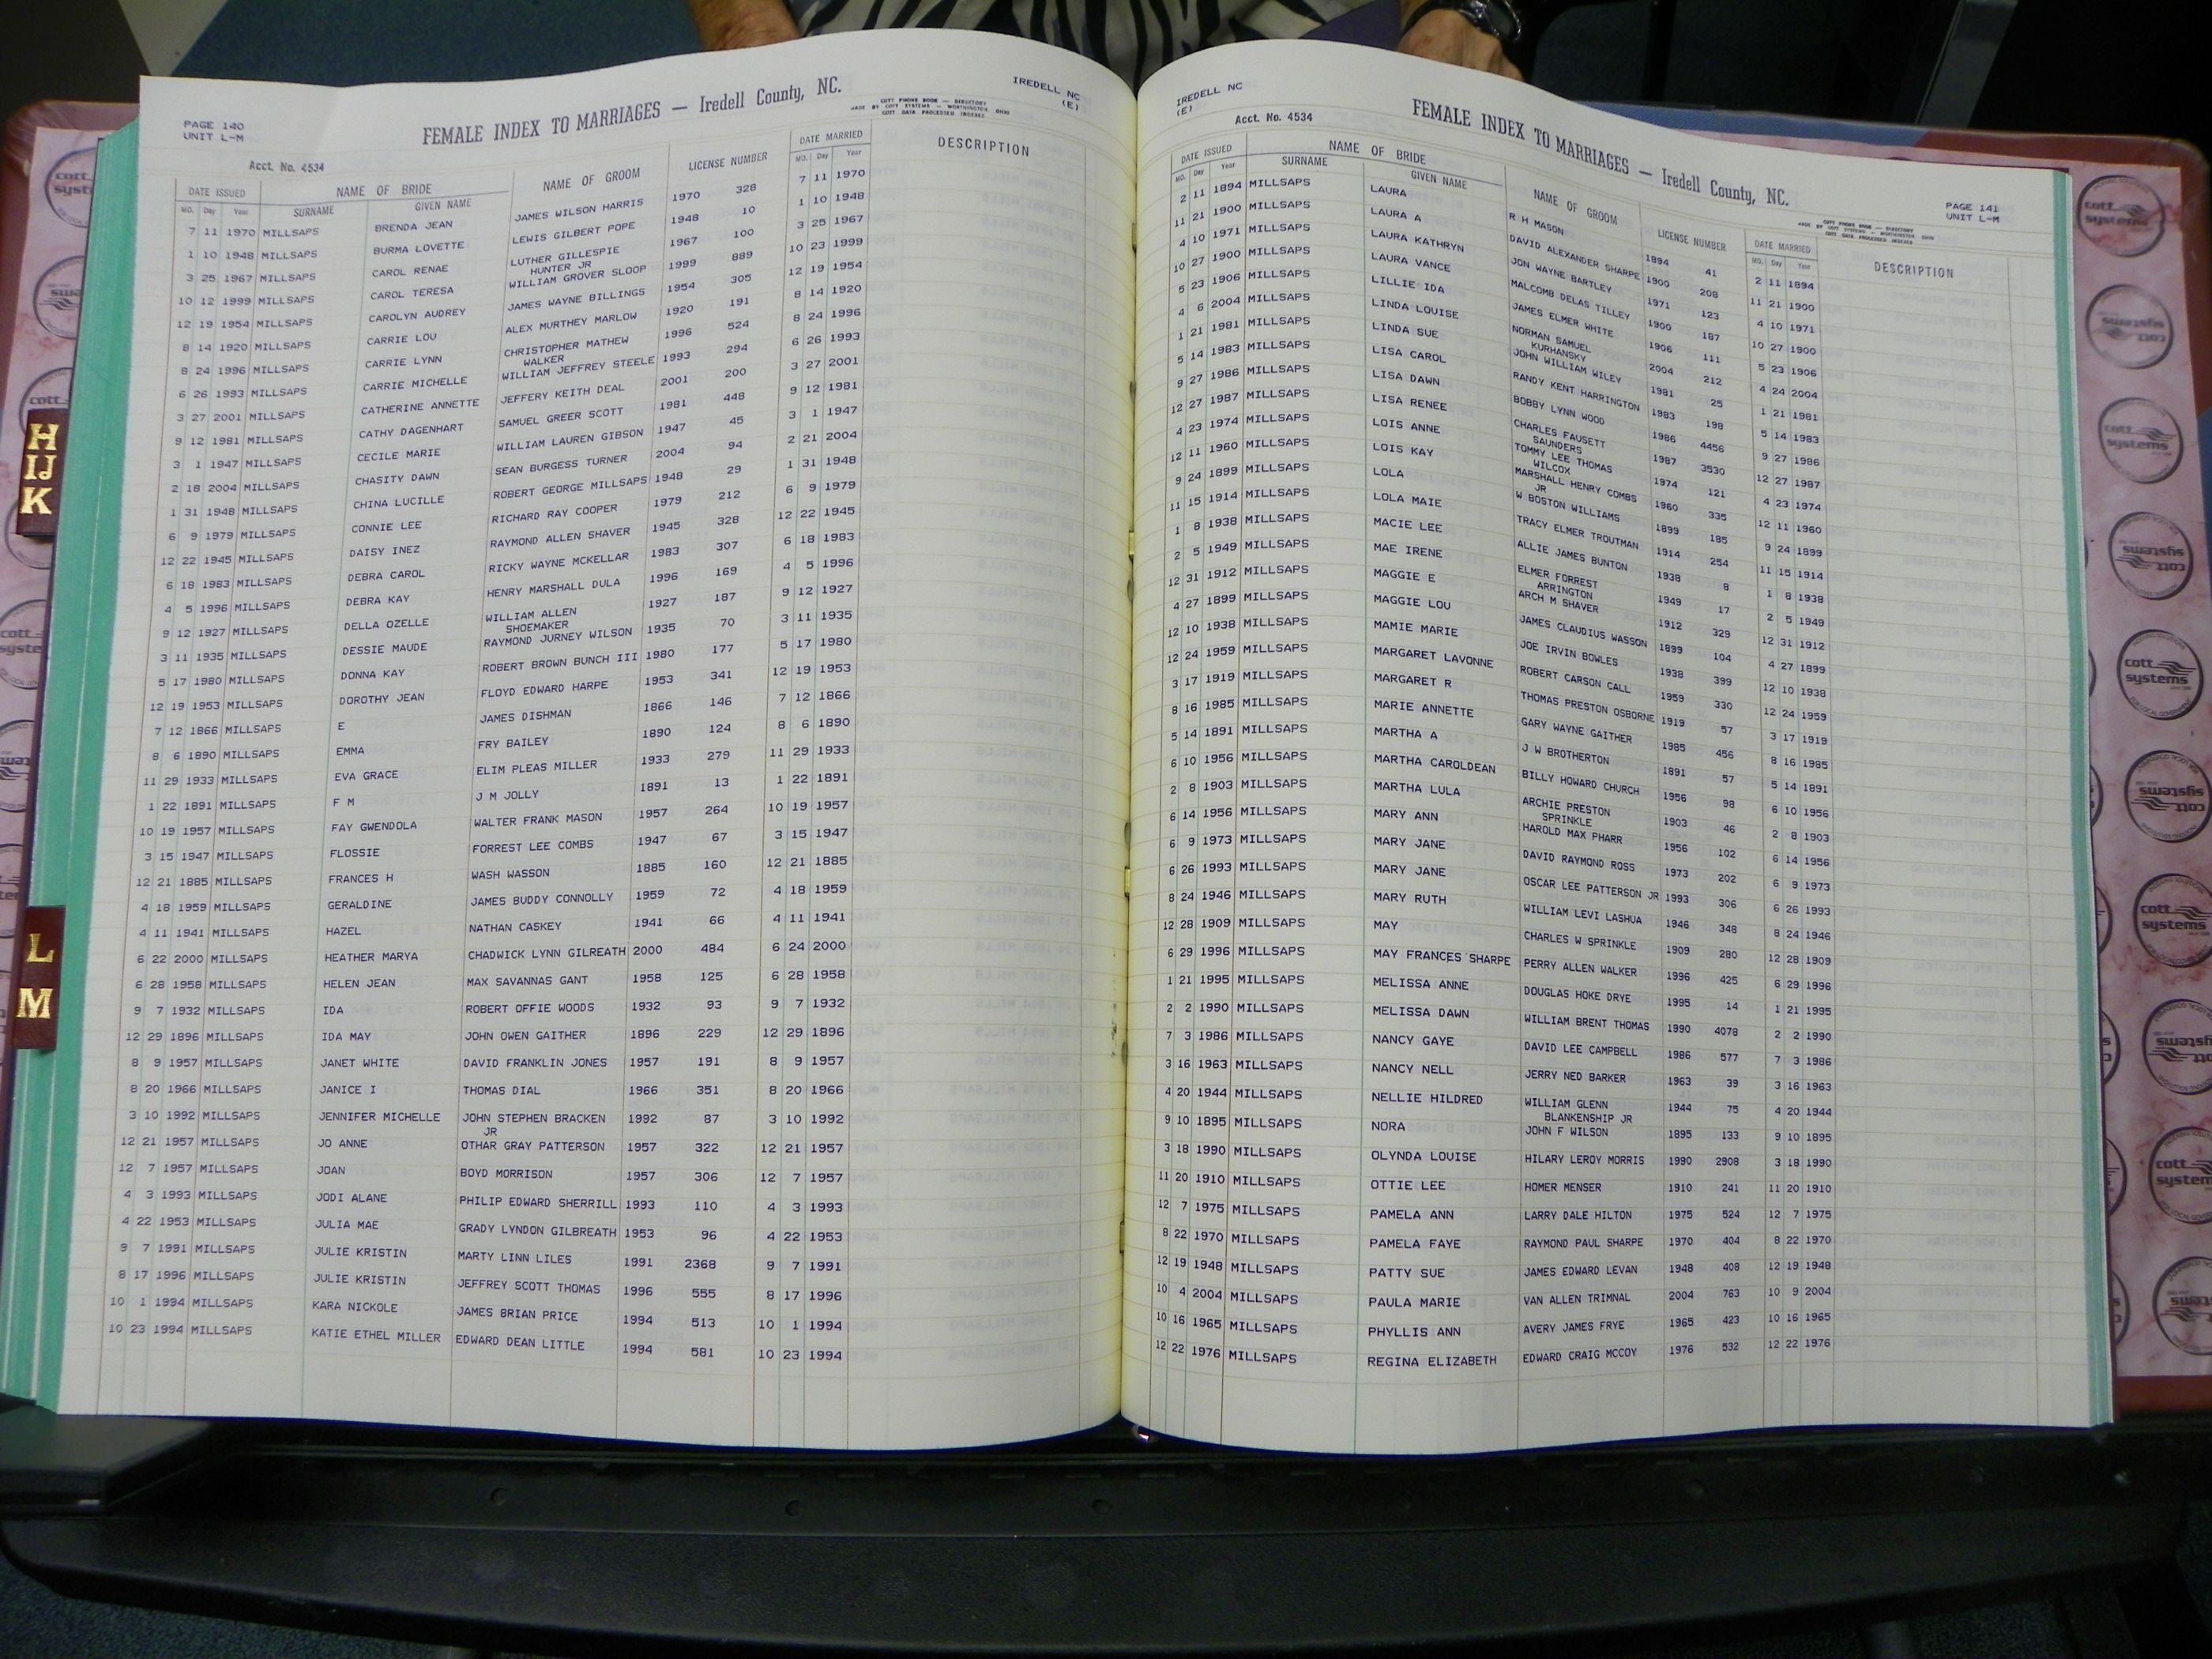 IREDELL NC
(E)
PAGE 140
UNIT L-M
FEMALE INDEX TO MARRIAGES — Iredell County, NC.
COTT PHONE BOOK — DIRECTORY
MADE BY COTT SYSTEMS — WORTHINGTON OHIO
COTT DATA PROCESSED INDEXES
Acct. No. 4534
DATE ISSUED NAME OF BRIDE NAME OF GROOM LICENSE NUMBER DATE MARRIED DESCRIPTION
MO. Day Year SURNAME GIVEN NAME MO. Day Year
7 11 1970 MILLSAPS BRENDA JEAN JAMES WILSON HARRIS 1970 328 7 11 1970
1 10 1948 MILLSAPS BURMA LOVETTE LEWIS GILBERT POPE 1948 10 1 10 1948
3 25 1967 MILLSAPS CAROL RENAE LUTHER GILLESPIE 1967 100 3 25 1967
HUNTER JR
10 12 1999 MILLSAPS CAROL TERESA WILLIAM GROVER SLOOP 1999 889 10 23 1999
12 19 1954 MILLSAPS CAROLYN AUDREY JAMES WAYNE BILLINGS 1954 305 12 19 1954
8 14 1920 MILLSAPS CARRIE LOU ALEX MURTHEY MARLOW 1920 191 8 14 1920
8 24 1996 MILLSAPS CARRIE LYNN CHRISTOPHER MATHEW 1996 524 8 24 1996
WALKER
6 26 1993 MILLSAPS CARRIE MICHELLE WILLIAM JEFFREY STEELE 1993 294 6 26 1993
3 27 2001 MILLSAPS CATHERINE ANNETTE JEFFERY KEITH DEAL 2001 200 3 27 2001
9 12 1981 MILLSAPS CATHY DAGENHART SAMUEL GREER SCOTT 1981 448 9 12 1981
3 1 1947 MILLSAPS CECILE MARIE WILLIAM LAUREN GIBSON 1947 45 3 1 1947
2 18 2004 MILLSAPS CHASITY DAWN SEAN BURGESS TURNER 2004 94 2 21 2004
1 31 1948 MILLSAPS CHINA LUCILLE ROBERT GEORGE MILLSAPS 1948 29 1 31 1948
6 9 1979 MILLSAPS CONNIE LEE RICHARD RAY COOPER 1979 212 6 9 1979
12 22 1945 MILLSAPS DAISY INEZ RAYMOND ALLEN SHAVER 1945 328 12 22 1945
6 18 1983 MILLSAPS DEBRA CAROL RICKY WAYNE MCKELLAR 1983 307 6 18 1983
4 5 1996 MILLSAPS DEBRA KAY HENRY MARSHALL DULA 1996 169 4 5 1996
9 12 1927 MILLSAPS DELLA OZELLE WILLIAM ALLEN 1927 187 9 12 1927
SHOEMAKER
3 11 1935 MILLSAPS DESSIE MAUDE RAYMOND JURNEY WILSON 1935 70 3 11 1935
5 17 1980 MILLSAPS DONNA KAY ROBERT BROWN BUNCH III 1980 177 5 17 1980
12 19 1953 MILLSAPS DOROTHY JEAN FLOYD EDWARD HARPE 1953 341 12 19 1953
7 12 1866 MILLSAPS E JAMES DISHMAN 1866 146 7 12 1866
8 6 1890 MILLSAPS EMMA FRY BAILEY 1890 124 8 6 1890
11 29 1933 MILLSAPS EVA GRACE ELIM PLEAS MILLER 1933 279 11 29 1933
1 22 1891 MILLSAPS F M J M JOLLY 1891 13 1 22 1891
10 19 1957 MILLSAPS FAY GWENDOLA WALTER FRANK MASON 1957 264 10 19 1957
3 15 1947 MILLSAPS FLOSSIE FORREST LEE COMBS 1947 67 3 15 1947
12 21 1885 MILLSAPS FRANCES H WASH WASSON 1885 160 12 21 1885
4 18 1959 MILLSAPS GERALDINE JAMES BUDDY CONNOLLY 1959 72 4 18 1959
4 11 1941 MILLSAPS HAZEL NATHAN CASKEY 1941 66 4 11 1941
6 22 2000 MILLSAPS HEATHER MARYA CHADWICK LYNN GILREATH 2000 484 6 24 2000
6 28 1958 MILLSAPS HELEN JEAN MAX SAVANNAS GANT 1958 125 6 28 1958
9 7 1932 MILLSAPS IDA ROBERT OFFIE WOODS 1932 93 9 7 1932
12 29 1896 MILLSAPS IDA MAY JOHN OWEN GAITHER 1896 229 12 29 1896
8 9 1957 MILLSAPS JANET WHITE DAVID FRANKLIN JONES 1957 191 8 9 1957
8 20 1966 MILLSAPS JANICE I THOMAS DIAL 1966 351 8 20 1966
3 10 1992 MILLSAPS JENNIFER MICHELLE JOHN STEPHEN BRACKEN 1992 87 3 10 1992
JR
12 21 1957 MILLSAPS JO ANNE OTHAR GRAY PATTERSON 1957 322 12 21 1957
12 7 1957 MILLSAPS JOAN BOYD MORRISON 1957 306 12 7 1957
4 3 1993 MILLSAPS JODI ALANE PHILIP EDWARD SHERRILL 1993 110 4 3 1993
4 22 1953 MILLSAPS JULIA MAE GRADY LYNDON GILBREATH 1953 96 4 22 1953
9 7 1991 MILLSAPS JULIE KRISTIN MARTY LINN LILES 1991 2368 9 7 1991
8 17 1996 MILLSAPS JULIE KRISTIN JEFFREY SCOTT THOMAS 1996 555 8 17 1996
10 1 1994 MILLSAPS KARA NICKOLE JAMES BRIAN PRICE 1994 513 10 1 1994
10 23 1994 MILLSAPS KATIE ETHEL MILLER EDWARD DEAN LITTLE 1994 581 10 23 1994
IREDELL NC
(E)
Acct. No. 4534
FEMALE INDEX TO MARRIAGES — Iredell County, NC.
PAGE 141
UNIT L-M
COTT PHONE BOOK — DIRECTORY
MADE BY COTT SYSTEMS — WORTHINGTON OHIO
COTT DATA PROCESSED INDEXES
DATE ISSUED NAME OF BRIDE NAME OF GROOM LICENSE NUMBER DATE MARRIED DESCRIPTION
MO. Day Year SURNAME GIVEN NAME MO. Day Year
2 11 1894 MILLSAPS LAURA R H MASON 1894 41 2 11 1894
11 21 1900 MILLSAPS LAURA A DAVID ALEXANDER SHARPE 1900 208 11 21 1900
4 10 1971 MILLSAPS LAURA KATHRYN JON WAYNE BARTLEY 1971 123 4 10 1971
10 27 1900 MILLSAPS LAURA VANCE MALCOMB DELAS TILLEY 1900 187 10 27 1900
5 23 1906 MILLSAPS LILLIE IDA JAMES ELMER WHITE 1906 111 5 23 1906
4 6 2004 MILLSAPS LINDA LOUISE NORMAN SAMUEL 2004 212 4 24 2004
KURHANSKY
1 21 1981 MILLSAPS LINDA SUE JOHN WILLIAM WILEY 1981 25 1 21 1981
5 14 1983 MILLSAPS LISA CAROL RANDY KENT HARRINGTON 1983 198 5 14 1983
9 27 1986 MILLSAPS LISA DAWN BOBBY LYNN WOOD 1986 4456 9 27 1986
12 27 1987 MILLSAPS LISA RENEE CHARLES FAUSETT 1987 3530 12 27 1987
SAUNDERS
4 23 1974 MILLSAPS LOIS ANNE TOMMY LEE THOMAS 1974 121 4 23 1974
WILCOX
12 11 1960 MILLSAPS LOIS KAY MARSHALL HENRY COMBS 1960 335 12 11 1960
JR
9 24 1899 MILLSAPS LOLA W BOSTON WILLIAMS 1899 185 9 24 1899
11 15 1914 MILLSAPS LOLA MAIE TRACY ELMER TROUTMAN 1914 254 11 15 1914
1 8 1938 MILLSAPS MACIE LEE ALLIE JAMES BUNTON 1938 8 1 8 1938
2 5 1949 MILLSAPS MAE IRENE ELMER FORREST 1949 17 2 5 1949
ARRINGTON
12 31 1912 MILLSAPS MAGGIE E ARCH M SHAVER 1912 329 12 31 1912
4 27 1899 MILLSAPS MAGGIE LOU JAMES CLAUDIUS WASSON 1899 104 4 27 1899
12 10 1938 MILLSAPS MAMIE MARIE JOE IRVIN BOWLES 1938 399 12 10 1938
12 24 1959 MILLSAPS MARGARET LAVONNE ROBERT CARSON CALL 1959 330 12 24 1959
3 17 1919 MILLSAPS MARGARET R THOMAS PRESTON OSBORNE 1919 57 3 17 1919
8 16 1985 MILLSAPS MARIE ANNETTE GARY WAYNE GAITHER 1985 456 8 16 1985
5 14 1891 MILLSAPS MARTHA A J W BROTHERTON 1891 57 5 14 1891
6 10 1956 MILLSAPS MARTHA CAROLDEAN BILLY HOWARD CHURCH 1956 98 6 10 1956
2 8 1903 MILLSAPS MARTHA LULA ARCHIE PRESTON 1903 46 2 8 1903
SPRINKLE
6 14 1956 MILLSAPS MARY ANN HAROLD MAX PHARR 1956 102 6 14 1956
6 9 1973 MILLSAPS MARY JANE DAVID RAYMOND ROSS 1973 202 6 9 1973
6 26 1993 MILLSAPS MARY JANE OSCAR LEE PATTERSON JR 1993 306 6 26 1993
8 24 1946 MILLSAPS MARY RUTH WILLIAM LEVI LASHUA 1946 348 8 24 1946
12 28 1909 MILLSAPS MAY CHARLES W SPRINKLE 1909 280 12 28 1909
6 29 1996 MILLSAPS MAY FRANCES SHARPE PERRY ALLEN WALKER 1996 425 6 29 1996
1 21 1995 MILLSAPS MELISSA ANNE DOUGLAS HOKE DRYE 1995 14 1 21 1995
2 2 1990 MILLSAPS MELISSA DAWN WILLIAM BRENT THOMAS 1990 4078 2 2 1990
7 3 1986 MILLSAPS NANCY GAYE DAVID LEE CAMPBELL 1986 577 7 3 1986
3 16 1963 MILLSAPS NANCY NELL JERRY NED BARKER 1963 39 3 16 1963
4 20 1944 MILLSAPS NELLIE HILDRED WILLIAM GLENN 1944 75 4 20 1944
BLANKENSHIP JR
9 10 1895 MILLSAPS NORA JOHN F WILSON 1895 133 9 10 1895
3 18 1990 MILLSAPS OLYNDA LOUISE HILARY LEROY MORRIS 1990 2908 3 18 1990
11 20 1910 MILLSAPS OTTIE LEE HOMER MENSER 1910 241 11 20 1910
12 7 1975 MILLSAPS PAMELA ANN LARRY DALE HILTON 1975 524 12 7 1975
8 22 1970 MILLSAPS PAMELA FAYE RAYMOND PAUL SHARPE 1970 404 8 22 1970
12 19 1948 MILLSAPS PATTY SUE JAMES EDWARD LEVAN 1948 408 12 19 1948
10 4 2004 MILLSAPS PAULA MARIE VAN ALLEN TRIMNAL 2004 763 10 9 2004
10 16 1965 MILLSAPS PHYLLIS ANN AVERY JAMES FRYE 1965 423 10 16 1965
12 22 1976 MILLSAPS REGINA ELIZABETH EDWARD CRAIG MCCOY 1976 532 12 22 1976
H
IJ
K
L
M
cott
systems